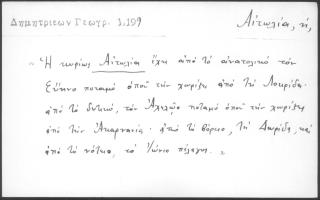 Δημητριέων Γεωγρ. 1,199
Αἰτωλία, ἡ,
„Ἡ κυρίως Αἰτωλία ἔχει ἀπὸ τὸ ἀνατολικὸ τὸν
Εὔηνο ποταμὸ ὁποῦ τὴν χωρίζει ἀπὸ τὴ Λοκρίδα·
ἀπὸ τὸ δυτικό, τὸν Ἀχελῷο ποταμὸ ὁποῦ τὴν χωρίζει
ἀπὸ τὴν Ἀκαρνανία· ἀπὸ τὸ βόρειο, τὴ Δωρίδα, καὶ
ἀπὸ τὸ νότιο, τὸ Ἰώνιο πέλαγος.„